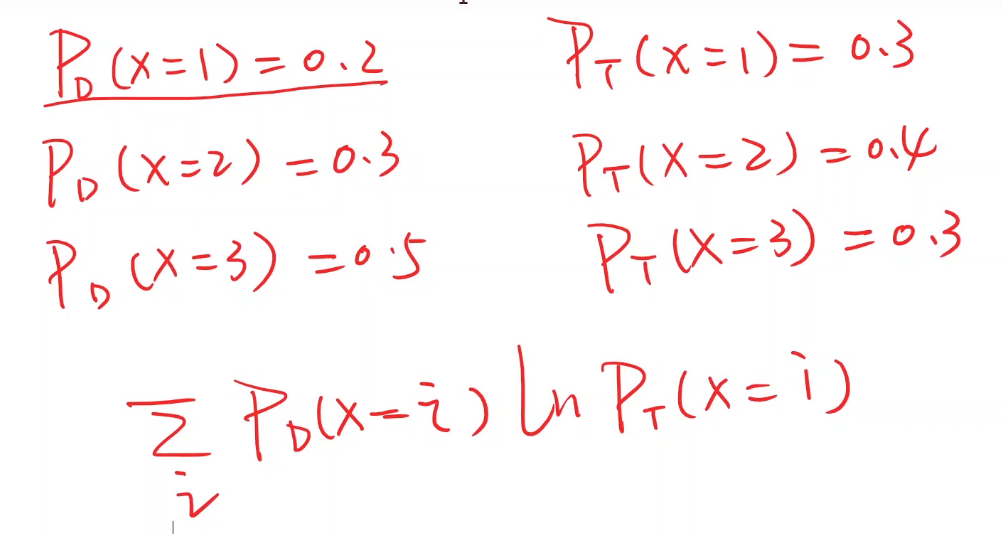 P_D(x=1)=0.2 P_T(x=1)=0.3
P_D(x=2)=0.3 P_T(x=2)=0.4
P_D(x=3)=0.5 P_T(x=3)=0.3
∑_i P_D(x=i) ln P_T(x=i)